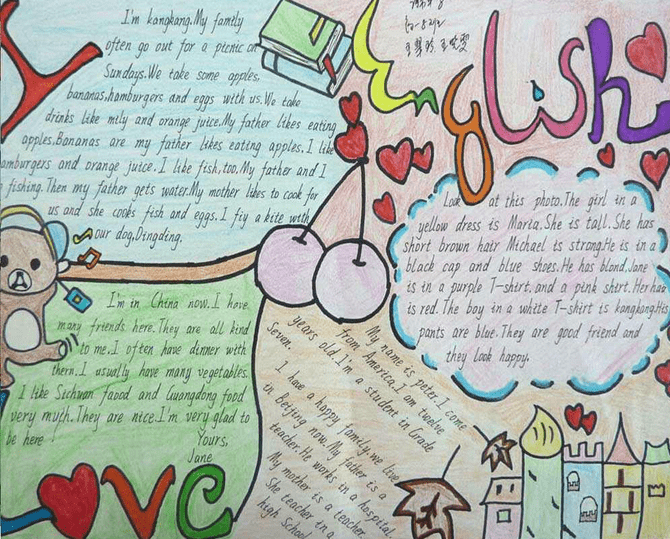 English
I'm kangkang.My family
often go out for a picnic on
Sundays.We take some apples,
bananas,hamburgers and eggs with us.We take
drinks like mily and orange juice.My father likes eating
apples.Bananas are my father likes eating apples.I like
hamburgers and orange juice.I like fish,too.My father and I
fishing.Then my father gets water.My mother likes to cook for
us and she cooks fish and eggs.I fiy a kite with
our dog,Dingding.
Look at this photo.The girl in a
yellow dress is Maria.She is tall.She has
short brown hair Michael is strong.He is in a
black cap and blue shoes.He has blond.Jane
is in a purple T-shirt.and a pink shirt.Her hair
is red.The boy in a white T-shirt is kangkong.His
pants are blue.They are good friend and
they look happy.
I'm in China now.I have
many friends here.They are all kind
to me.I often have dinner with
them.I usually have many vegetables.
I like Sichuan faood and Guangdong food
very much.They are nice.I'm very glad to
be here
Yours,
Jane
My name is peter.I come
from America.I am twelve
years old.I'm a student in Grade
Seven.
I have a happy family.we live
in Beijing now.My father is a
teacher.He works in a hospital.
My mother is a teocher
She teacher in a
high School
Love